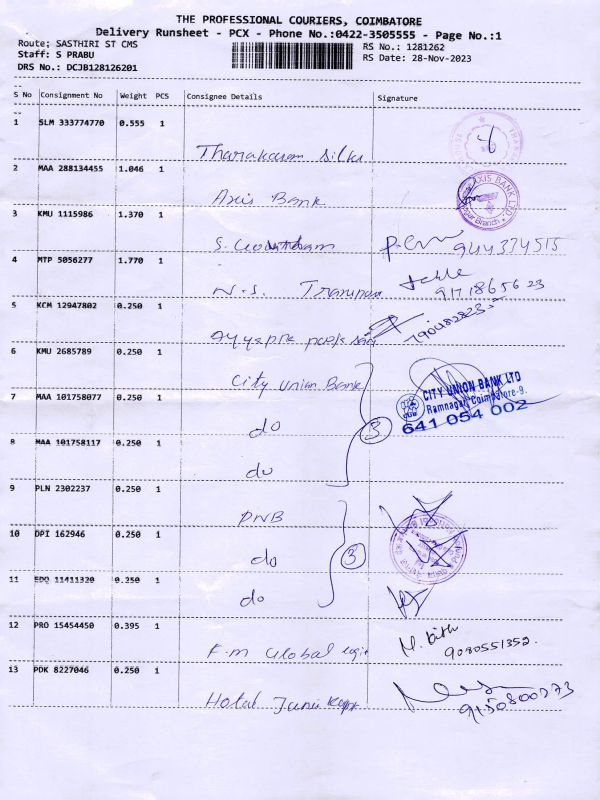 THE PROFESSIONAL COURIERS, COIMBATORE
Delivery Runsheet - PCX - Phone No.:0422-3505555 - Page No.:1
Route; SASTHIRI ST CMS
Staff: S PRABU
DRS No.: DCJB128126201
RS No.: 1281262
RS Date: 28-Nov-2023
S No Consignment No Weight PCS Consignee Details Signature
1 SLM 333774770 0.555 1
Tharakaram Silks
2 MAA 288134455 1.046 1
Axis Bank
AXIS BANK LTD
Branch
3 KMU 1115986 1.370 1
S.
944374515
4 MTP 5056277 1.770 1
N.S.
5 KCM 12947802 0.250 1
6 KMU 2685789 0.250 1
City Union Bank
CITY UNION BANK LTD
Ramnagar, Coimbatore-9.
641 054 002
7 MAA 101758077 0.250 1
do
3
8 MAA 101758117 0.250 1
do
9 PLN 2302237 0.250 1
PNB
10 DPI 162946 0.250 1
do
3
11 EDQ 11411320 0.250 1
do
12 PRO 15454450 0.395 1
F.M Global
9080551352.
13 PDK 8227046 0.250 1
Hotel
9150800273